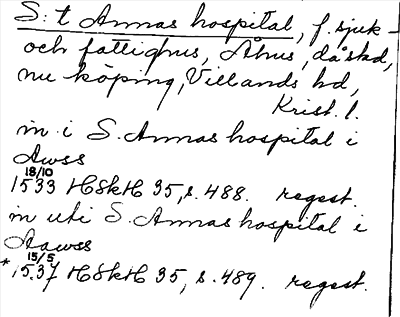 S:t Annas hospital, f. sjuk-
och fattighus, Åhus, då stad,
nu köping, Villands hd,
Krist. l.
in i S. Annas hospital i
Awss
18/10
1533 HSkH 35, s. 488. regest.
in uti S. Annas hospital i
Aawss
15/5
*1537 HSkH 35, s. 489. regest.